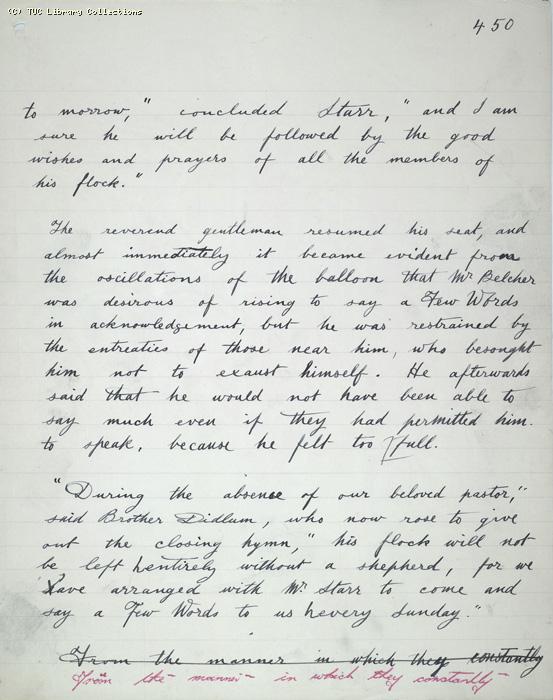 (C) TUC Library Collections
450
to morrow," concluded Starr, "and I am
sure he will be followed by the good
wishes and prayers of all the members of
his flock."
The reverend gentleman resumed his seat, and
almost immediately it became evident from
the oscillations of the balloon that Mr Belcher
was desirous of rising to say a Few Words
in acknowledgement, but he was restrained by
the entreaties of those near him, who besought
him not to exaust himself. He afterwards
said that he would not have been able to
say much even if they had permitted him.
to speak, because he felt too full.
"During the absence of our beloved pastor,"
said Brother Didlum, who now rose to give
out the closing hymn, "his flock will not
be left hentirely without a shepherd, for we
have arranged with Mr Starr to come and
say a Few Words to us hevery Sunday."
From the manner in which they constantly
From the manner in which they constantly